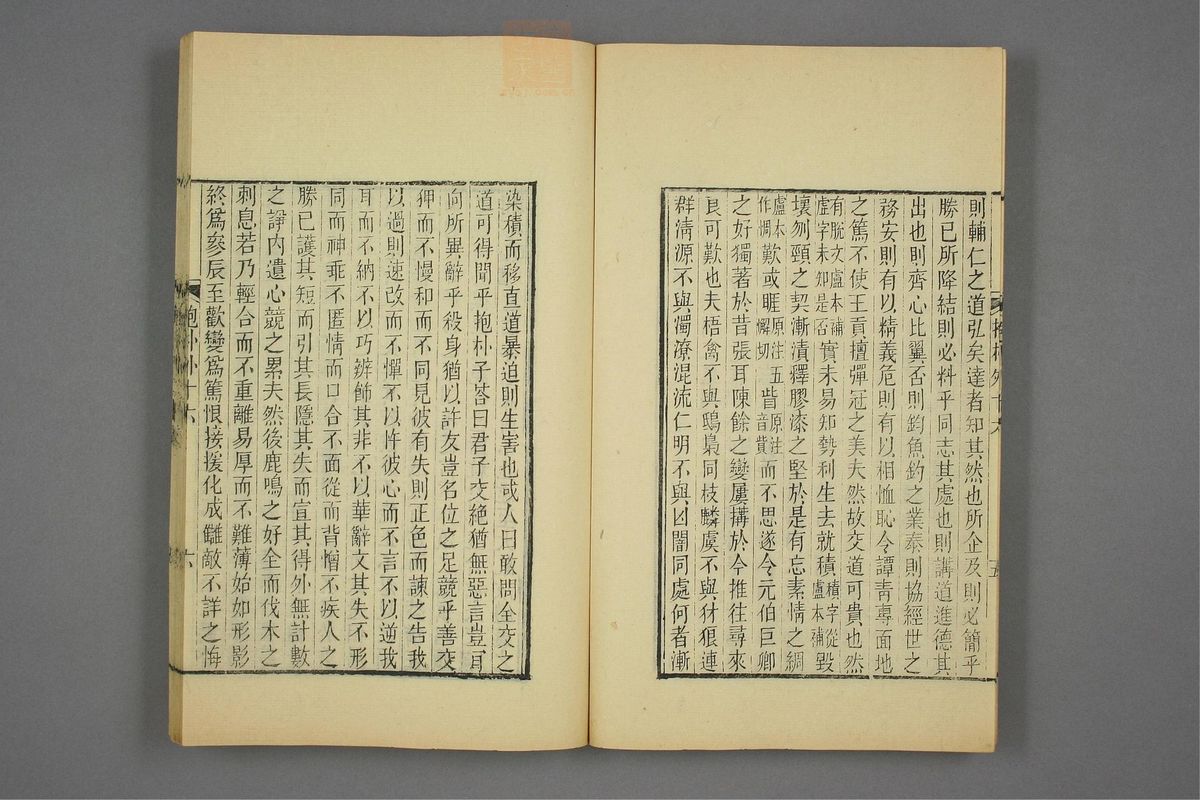 則輔仁之道弘矣達者知其然也所企及則必簡乎
勝己所降結則必料乎同志其處也則講道進德其
出也則齊心比翼否則鈞魚釣之業泰則協經世之
務安則有以精義危則有以相恤恥令譚青專面地
之篤不使王貢擅彈冠之美夫然故交道可貴也然
有脫文盧本補虛字未知是否實未易知勢利生去就積積字從盧本補毀
壞刎頸之契漸漬釋膠漆之堅於是有忘素情之綢
盧本作惆歎或睚原注五懈切眥原注音貲而不思遂令元伯巨卿
之好獨著於昔張耳陳餘之變屢搆於今推往尋來
良可歎也夫梧禽不與鴟梟同枝麟虞不與豺狼連
群清源不與濁潦混流仁明不與凶闇同處何者漸
染積而移直道暴迫則生害也或人曰敢問全交之
道可得聞乎抱朴子答曰君子交絕猶無惡言豈肎
向所異辭乎殺身猶以許友豈名位之足競乎善交
狎而不慢和而不同見彼有失則正色而諫之告我
以過則速改而不憚不以忤彼心而不言不以逆我
耳而不納不以巧辯飾其非不以華辭文其失不形
同而神乖不匿情而口合不面從而背憎不疾人之
勝已護其短而引其長隱其失而宣其得外無計數
之諍內遺心競之累夫然後鹿鳴之好全而伐木之
刺息若乃輕合而不重離易厚而不難薄始如形影
終爲參辰至歡變爲篤恨接援化成讎敵不詳之悔
抱朴外十六
六